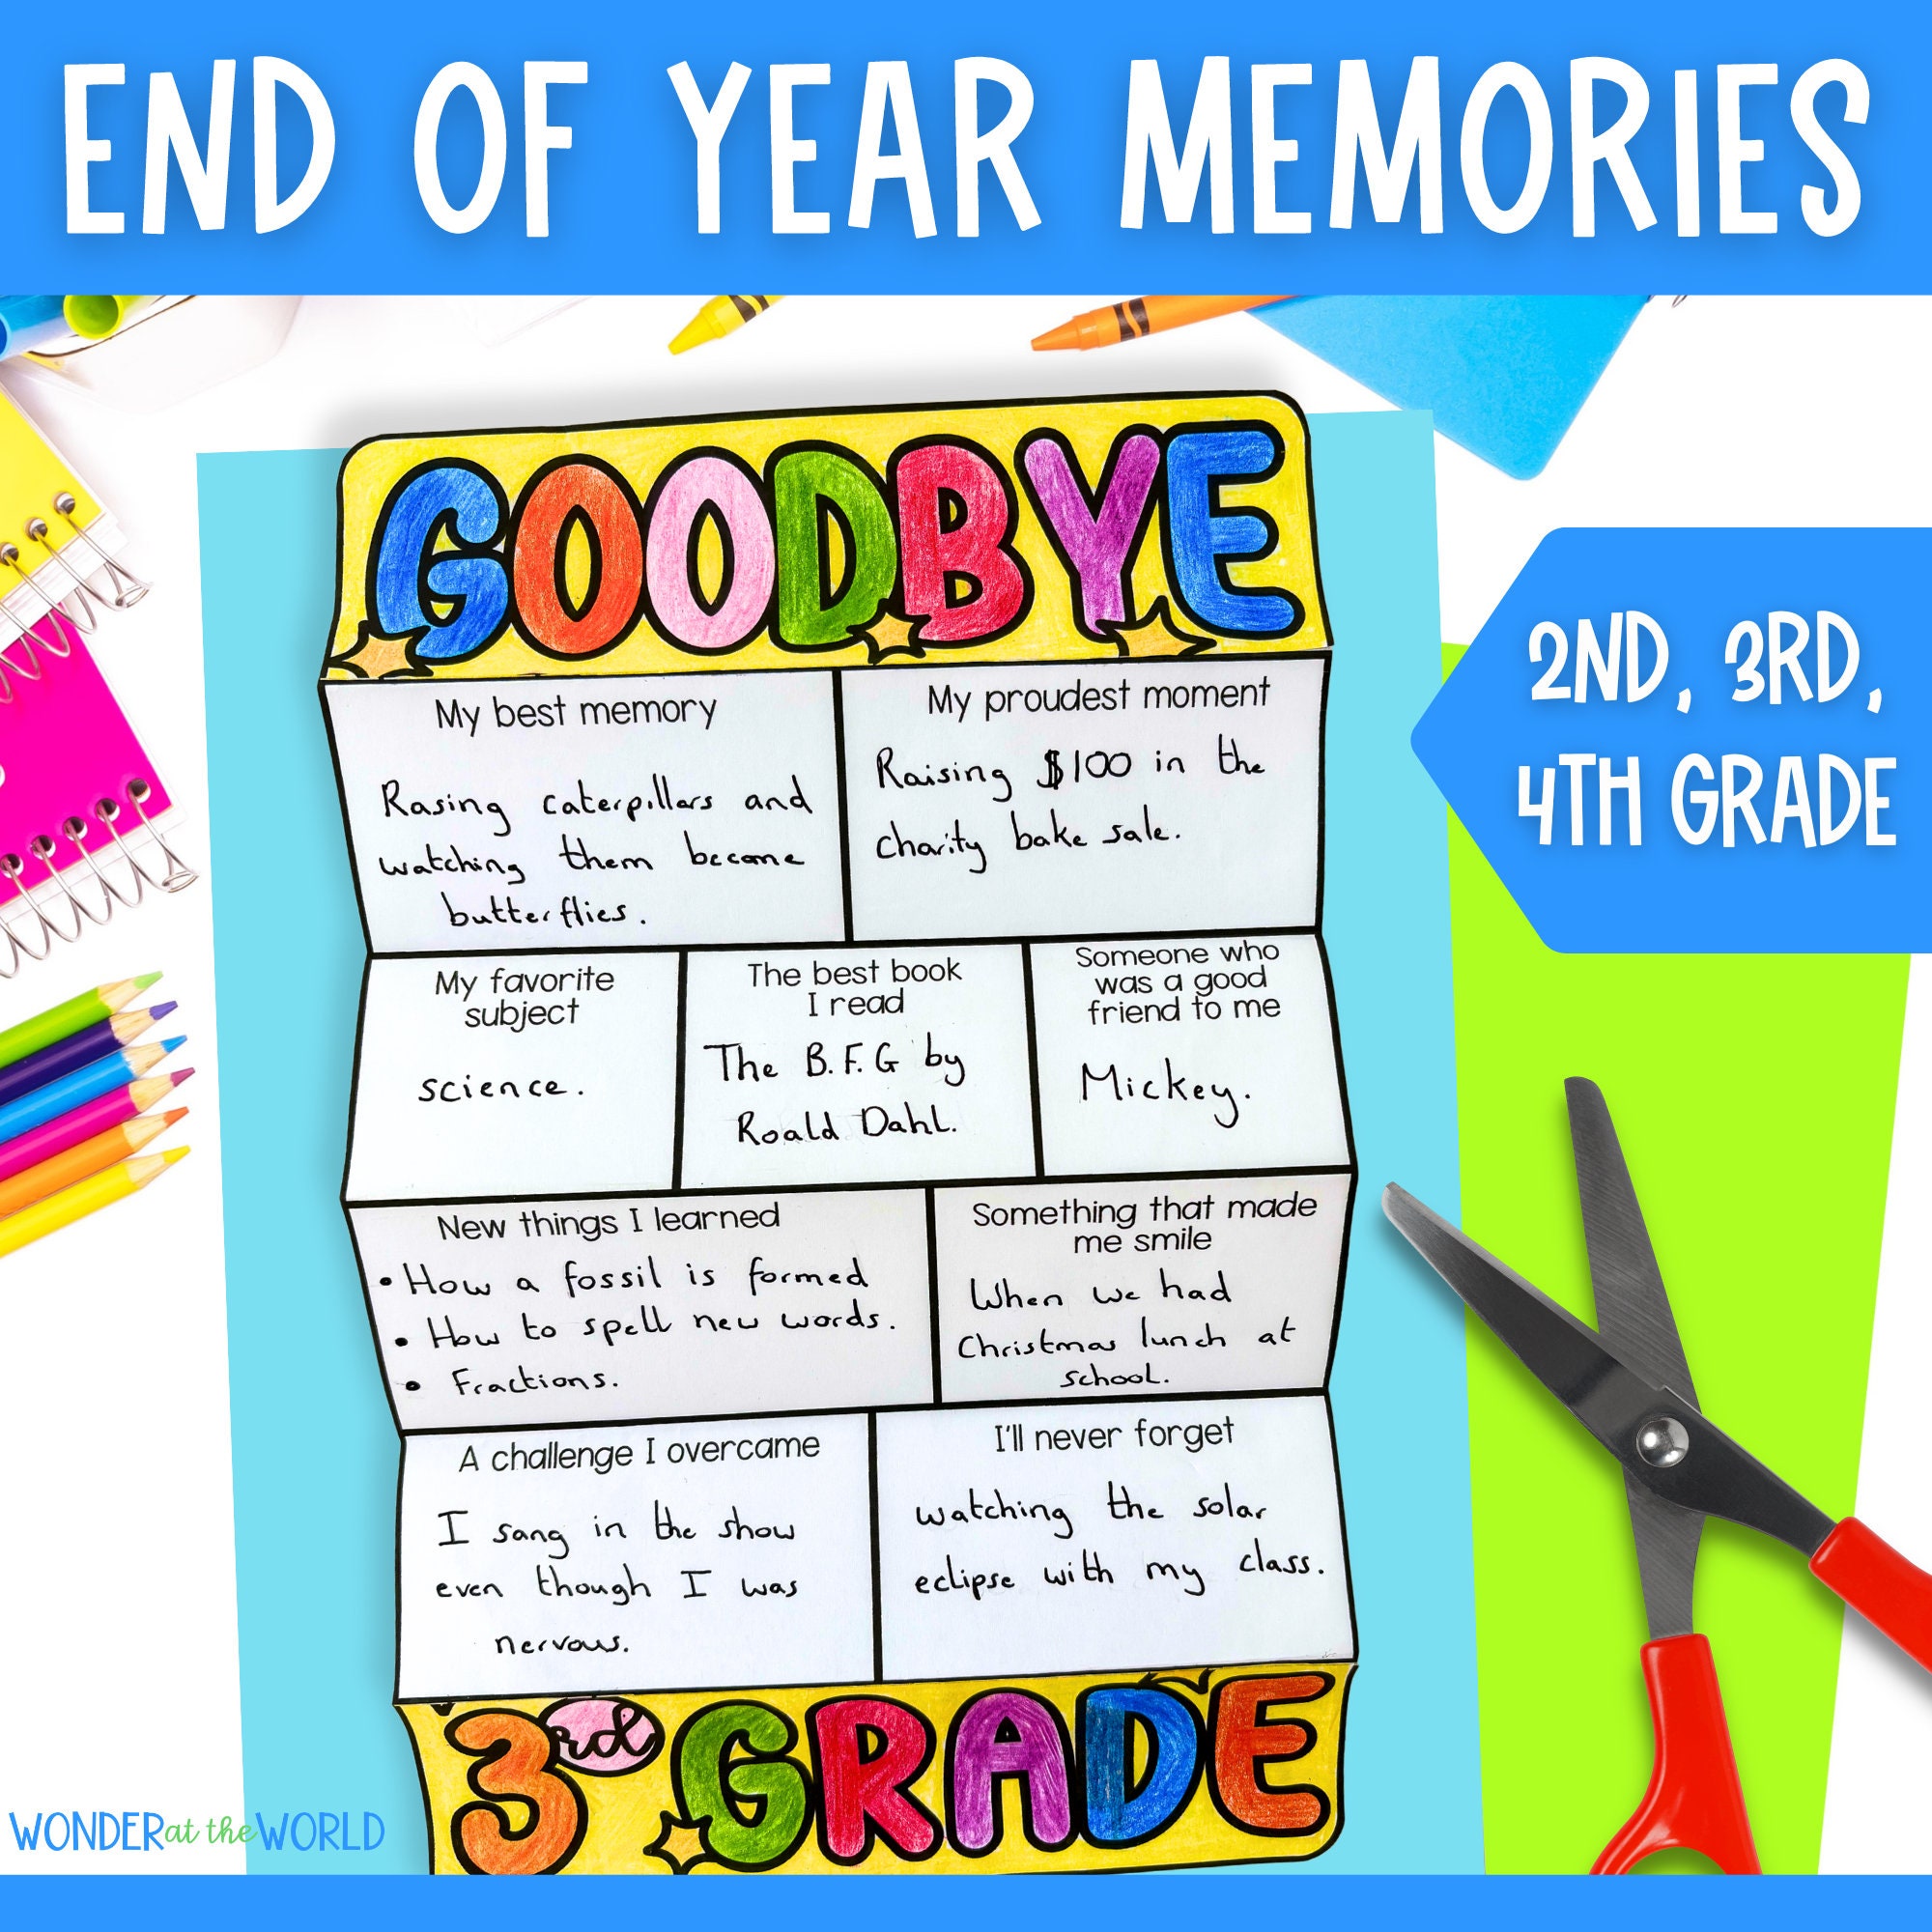 END OF YEAR MEMORIES
GOODBYE
My best memory
Rasing caterpillars and
watching them become
butterflies.
My proudest moment
Raising $100 in the
charity bake sale.
2ND, 3RD,
4TH GRADE
My favorite
subject
science.
The best book
I read
The B.F.G by
Roald Dahl.
Someone who
was a good
friend to me
Mickey.
New things I learned
• How a fossil is formed
• How to spell new words.
• Fractions.
Something that made
me smile
When we had
Christmas lunch at
school.
A challenge I overcame
I sang in the show
even though I was
nervous.
I'll never forget
watching the solar
eclipse with my class.
3rd GRADE
WONDER at the WORLD